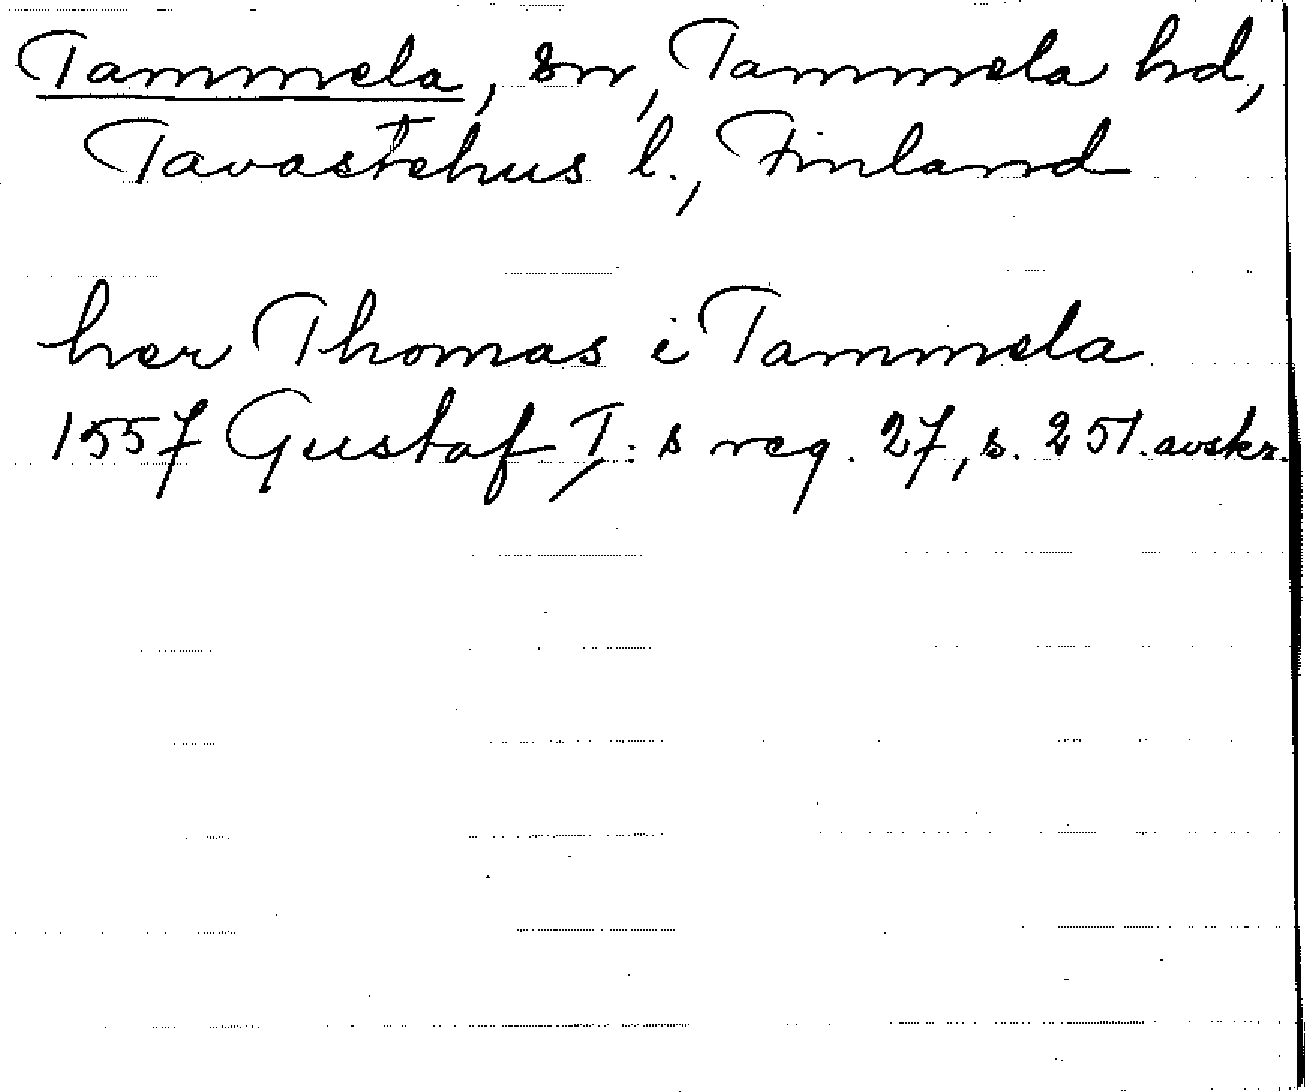 Tammela, sn, Tammela hd,
Tavastehus l., Finland
her Thomas i Tammela
1557 Gustaf I:s reg. 27, s. 251. avskr.